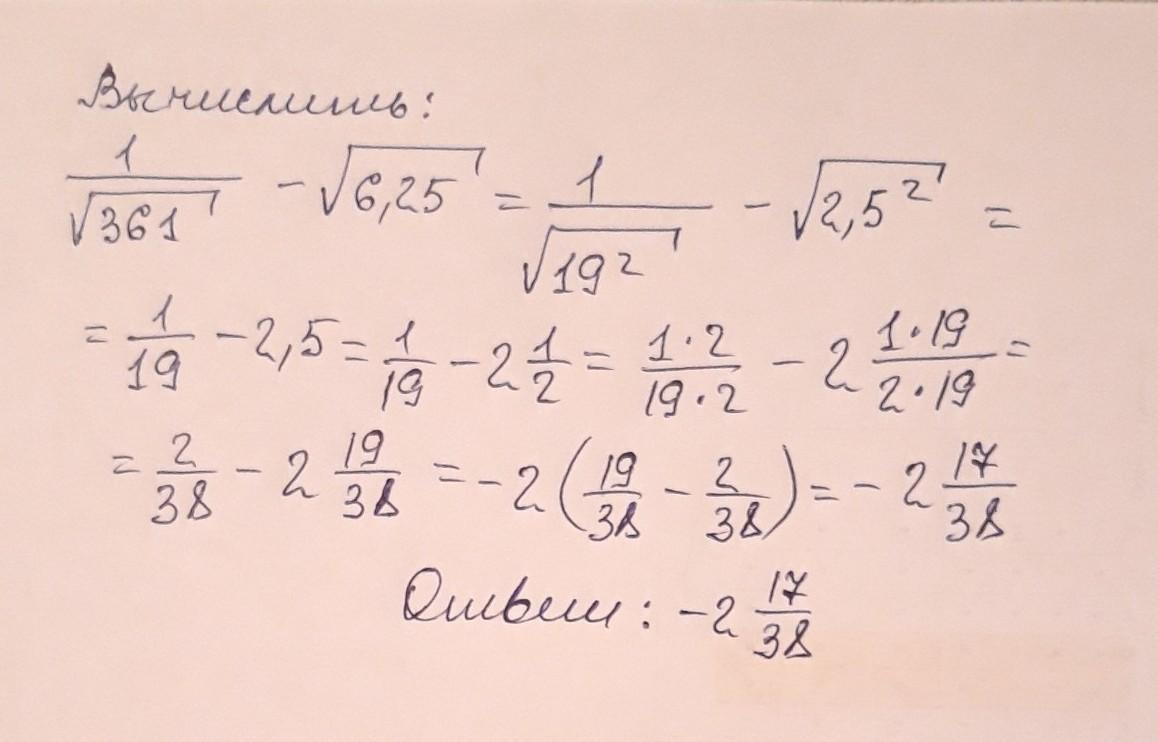 Вычислить:
1/√361 - √6,25 = 1/√19² - √2,5² =
= 1/19 - 2,5 = 1/19 - 2 1/2 = 1·2/19·2 - 2 1·19/2·19 =
= 2/38 - 2 19/38 = -2(19/38 - 2/38) = -2 17/38
Ответ: -2 17/38